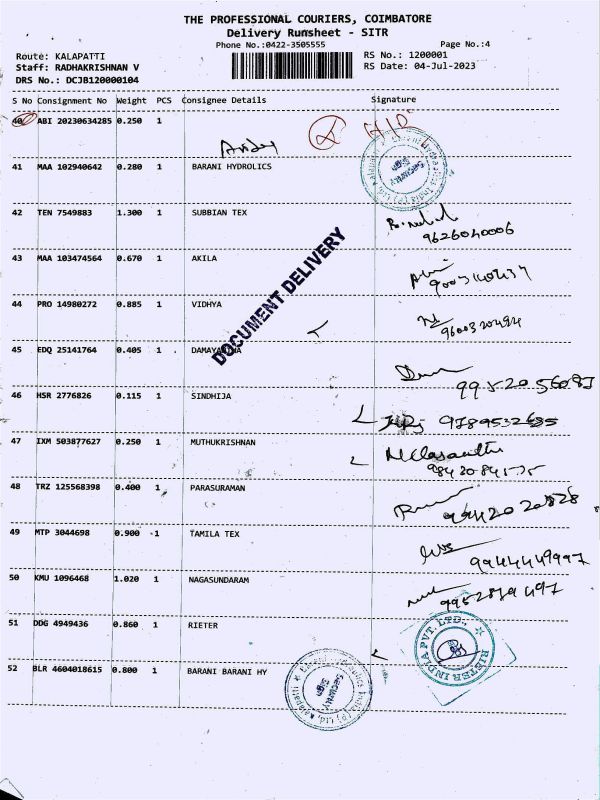 THE PROFESSIONAL COURIERS, COIMBATORE
Delivery Runsheet - SITR
Phone No.:0422-3505555 Page No.:4
Route: KALAPATTI RS No.: 1200001
Staff: RADHAKRISHNAN V RS Date: 04-Jul-2023
DRS No.: DCJB120000104
S No Consignment No Weight PCS Consignee Details Signature
40 ABI 20230634285 0.250 1
41 MAA 102940642 0.280 1 BARANI HYDROLICS
Security Sign
42 TEN 7549883 1.300 1 SUBBIAN TEX
9626040006
43 MAA 103474564 0.670 1 AKILA
DOCUMENT DELIVERY
44 PRO 14980272 0.885 1 VIDHYA
45 EDQ 25141764 0.405 1 DAMAYANTHA
46 HSR 2776826 0.115 1 SINDHIJA
9789532685
47 IXM 503877627 0.250 1 MUTHUKRISHNAN
48 TRZ 125568398 0.400 1 PARASURAMAN
9942020828
49 MTP 3044698 0.900 1 TAMILA TEX
9944449997
50 KMU 1096468 1.020 1 NAGASUNDARAM
51 DDG 4949436 0.860 1 RIETER
RIETER INDIA PVT. LTD.,
52 BLR 4604018615 0.800 1 BARANI BARANI HY
Security Sign